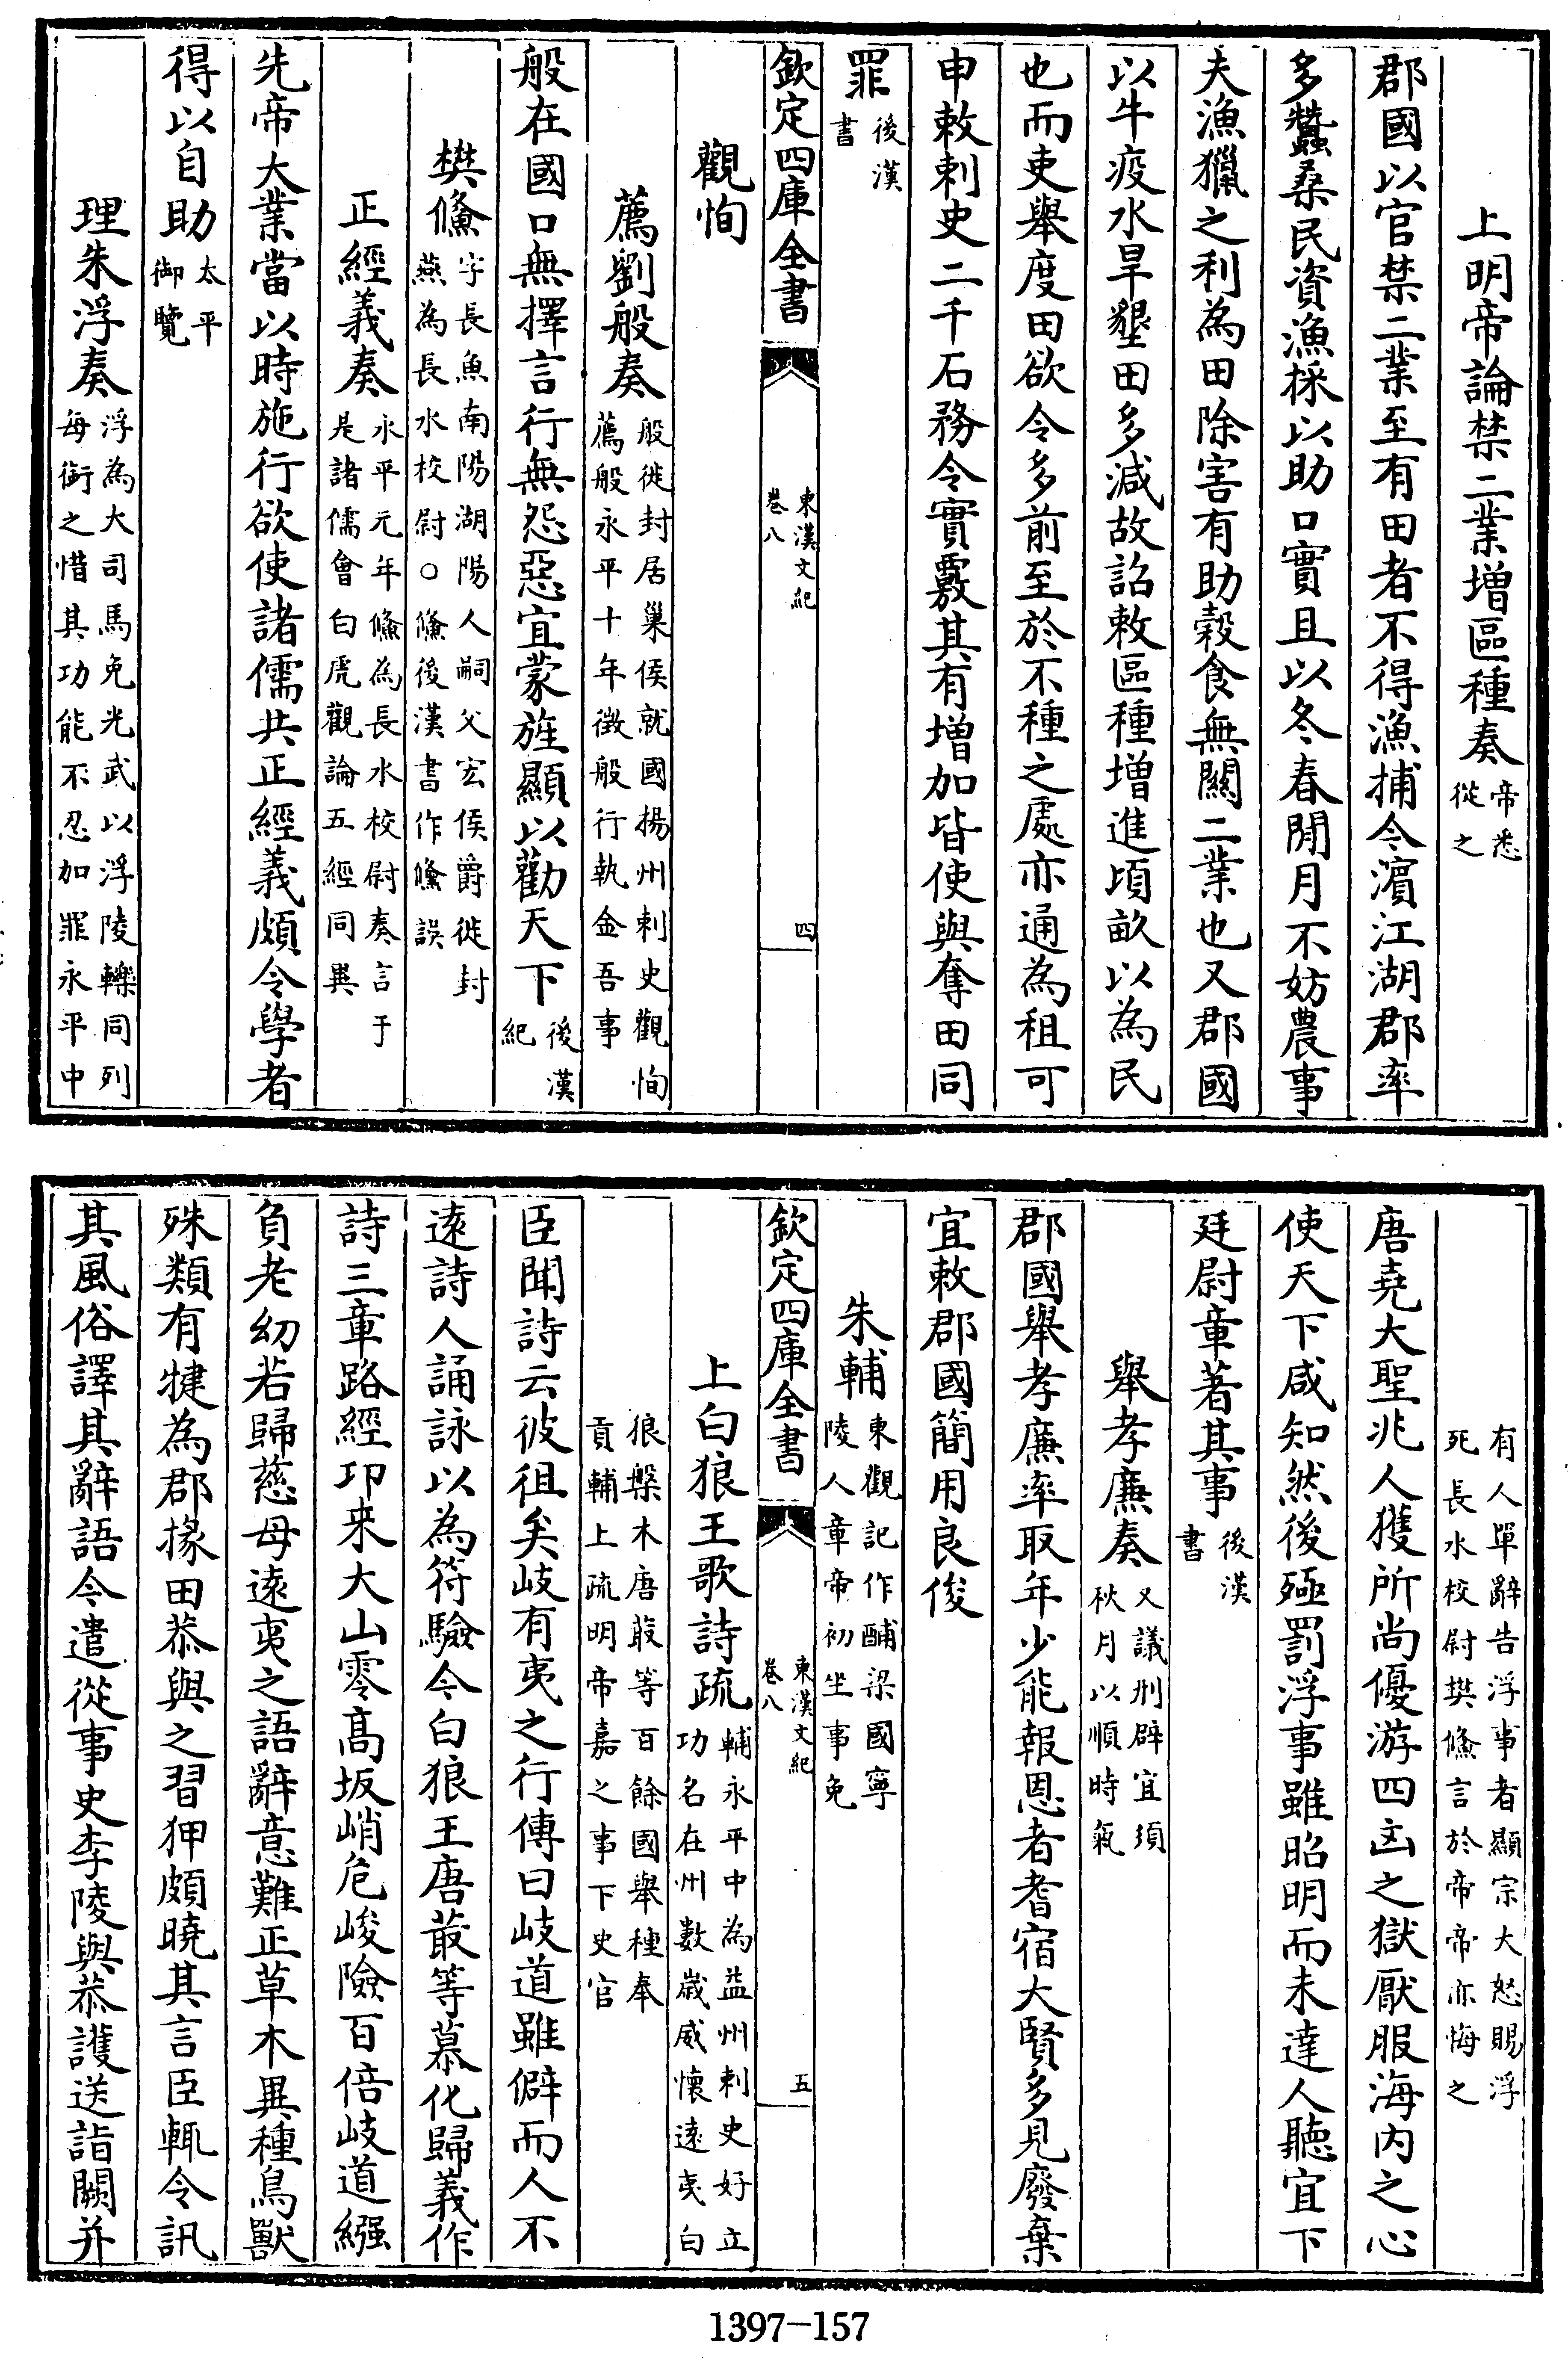 上明帝論禁二業增區種奏帝悉從之
郡國以官禁二業至有田者不得漁捕今濵江湖郡率
多蠶桑民資漁採以助口實且以冬春閒月不妨農事
夫漁獵之利為田除害有助穀食無關二業也又郡國
以牛疫水旱墾田多減故詔敕區種增進頃畝以為民
也而吏舉度田欲令多前至於不種之處亦通為租可
申敕刺史二千石務令實覈其有增加皆使與奪田同
罪後漢書
欽定四庫全書 東漢文紀 卷八 四
觀恂
薦劉般奏般徙封居巢侯就國揚州刺史觀恂薦般永平十年徵般行執金吾事
般在國口無擇言行無怨惡宜蒙旌顯以勸天下後漢紀
樊鯈字長魚南陽湖陽人嗣父宏侯爵徙封燕為長水校尉○鯈後漢書作儵誤
正經義奏永平元年鯈為長水校尉奏言于是諸儒會白虎觀論五經同異
先帝大業當以時施行欲使諸儒共正經義頗令學者
得以自助太平御覽
理朱浮奏浮為大司馬免光武以浮陵轢同列每銜之惜其功能不忍加罪永平中
有人單辭告浮事者顯宗大怒賜浮死長水校尉樊鯈言於帝帝亦悔之
唐堯大聖兆人獲所尚優游四凶之獄厭服海内之心
使天下咸知然後殛罰浮事雖昭明而未達人聽宜下
廷尉章著其事後漢書
舉孝廉奏又議刑辟宜須秋月以順時氣
郡國舉孝廉率取年少能報恩者耆宿大賢多見廢棄
宜敕郡國簡用良俊
朱輔東觀記作酺梁國寧陵人章帝初坐事免
欽定四庫全書 東漢文紀 卷八 五
上白狼王歌詩疏輔永平中為益州刺史好立功名在州數歲威懷遠夷白
狼槃木唐菆等百餘國舉種奉貢輔上疏明帝嘉之事下史官
臣聞詩云彼徂矣岐有夷之行傳曰岐道雖僻而人不
遠詩人誦詠以為符驗今白狼王唐菆等慕化歸義作
詩三章路經卭来大山零髙坂峭危峻險百倍岐道繦
負老幼若歸慈母遠夷之語辭意難正草木異種鳥獸
殊類有犍為郡掾田恭與之習狎頗曉其言臣輒令訊
其風俗譯其辭語今遣從事史李陵與恭護送詣闕并
1397—157